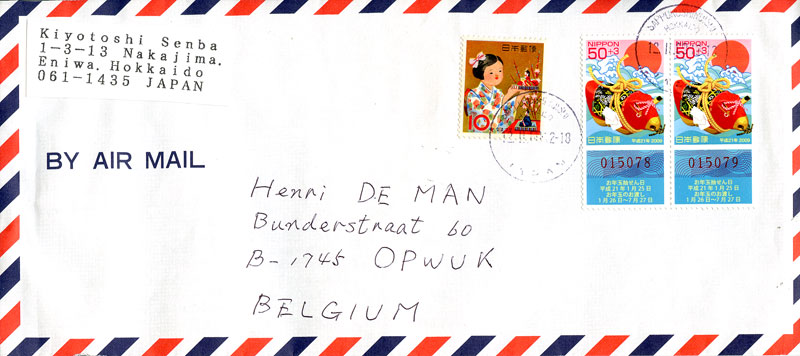 Kiyotoshi Senba
1-3-13 Nakajima.
Eniwa. Hokkaido
061-1435 JAPAN
BY AIR MAIL
日本郵便
10
NIPPON
50+3
日本郵便 平成21年 2009
015078
お年玉抽せん日
平成21年1月25日
お年玉のお渡し
1月26日~7月27日
NIPPON
50+3
日本郵便 平成21年 2009
015079
お年玉抽せん日
平成21年1月25日
お年玉のお渡し
1月26日~7月27日
Henri DE MAN
Bunderstraat 60
B-1745 OPWUK
BELGIUM